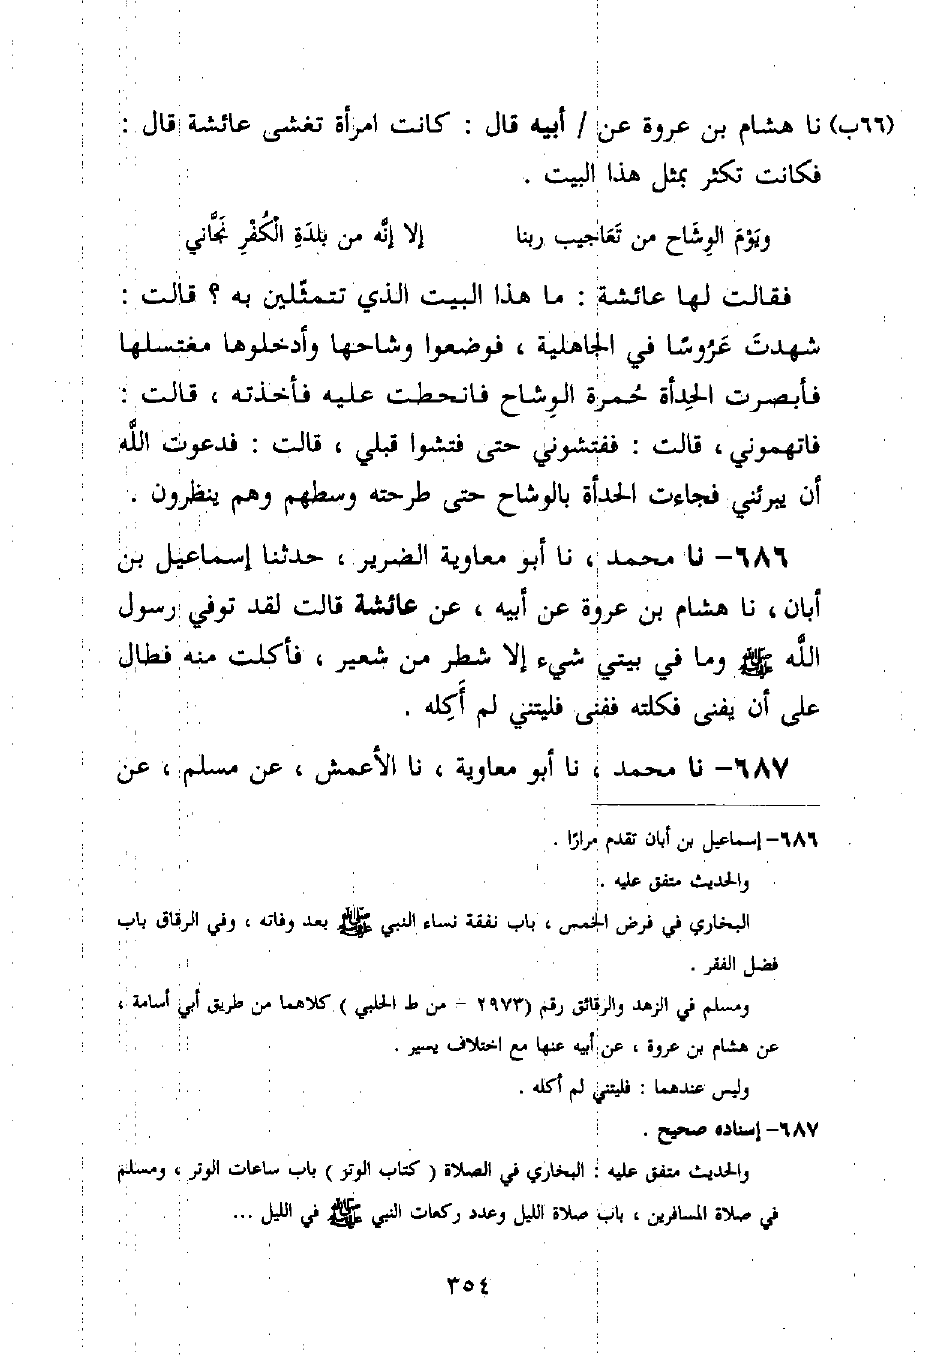 (٦٦ب) نا هشام بن عروة عن / أبيه قال : كانت امرأة تغشى عائشة قال :
فكانت تكثر بمثل هذا البيت .
ويَوْمَ الوِشَاح من تَعَاجيب ربنا إلا إنَّه من بلدَةِ الْكُفْرِ نَجَّاني
فقالت لها عائشة : ما هذا البيت الذي تتمثّلين به ؟ قالت :
شهدتَ عَرُوسًا في الجاهلية ، فوضعوا وشاحها وأدخلوها مغتسلها
فأبصرت الحِدأة حُمرة الوِشاح فانحطت عليه فأخذته ، قالت :
فاتهموني ، قالت : ففتشوني حتى فتشوا قبلي ، قالت : فدعوت اللَّه
أن يبرئني فجاءت الحدأة بالوشاح حتى طرحته وسطهم وهم ينظرون .
٦٨٦- نا محمد ، نا أبو معاوية الضرير ، حدثنا إسماعيل بن
أبان ، نا هشام بن عروة عن أبيه ، عن عائشة قالت لقد توفي رسول
اللَّه ﷺ وما في بيتي شيء إلا شطر من شعير ، فأكلت منه فطال
على أن يفنى فكلته ففنى فليتني لم أَكِله .
٦٨٧- نا محمد ، نا أبو معاوية ، نا الأعمش ، عن مسلم ، عن
٦٨٦- إسماعيل بن أبان تقدم مرارًا .
والحديث متفق عليه .
البخاري في فرض الخمس ، باب نفقة نساء النبي ﷺ بعد وفاته ، وفي الرقاق باب
فضل الفقر .
ومسلم في الزهد والرقائق رقم (٢٩٧٣ - من ط الحلبي ) كلاهما من طريق أبي أسامة ،
عن هشام بن عروة ، عن أبيه عنها مع اختلاف يسير .
وليس عندهما : فليتني لم أكله .
٦٨٧- إسناده صحيح .
والحديث متفق عليه : البخاري في الصلاة ( كتاب الوتر ) باب ساعات الوتر ، ومسلم
في صلاة المسافرين ، باب صلاة الليل وعدد ركعات النبي ﷺ في الليل ...
٣٥٤